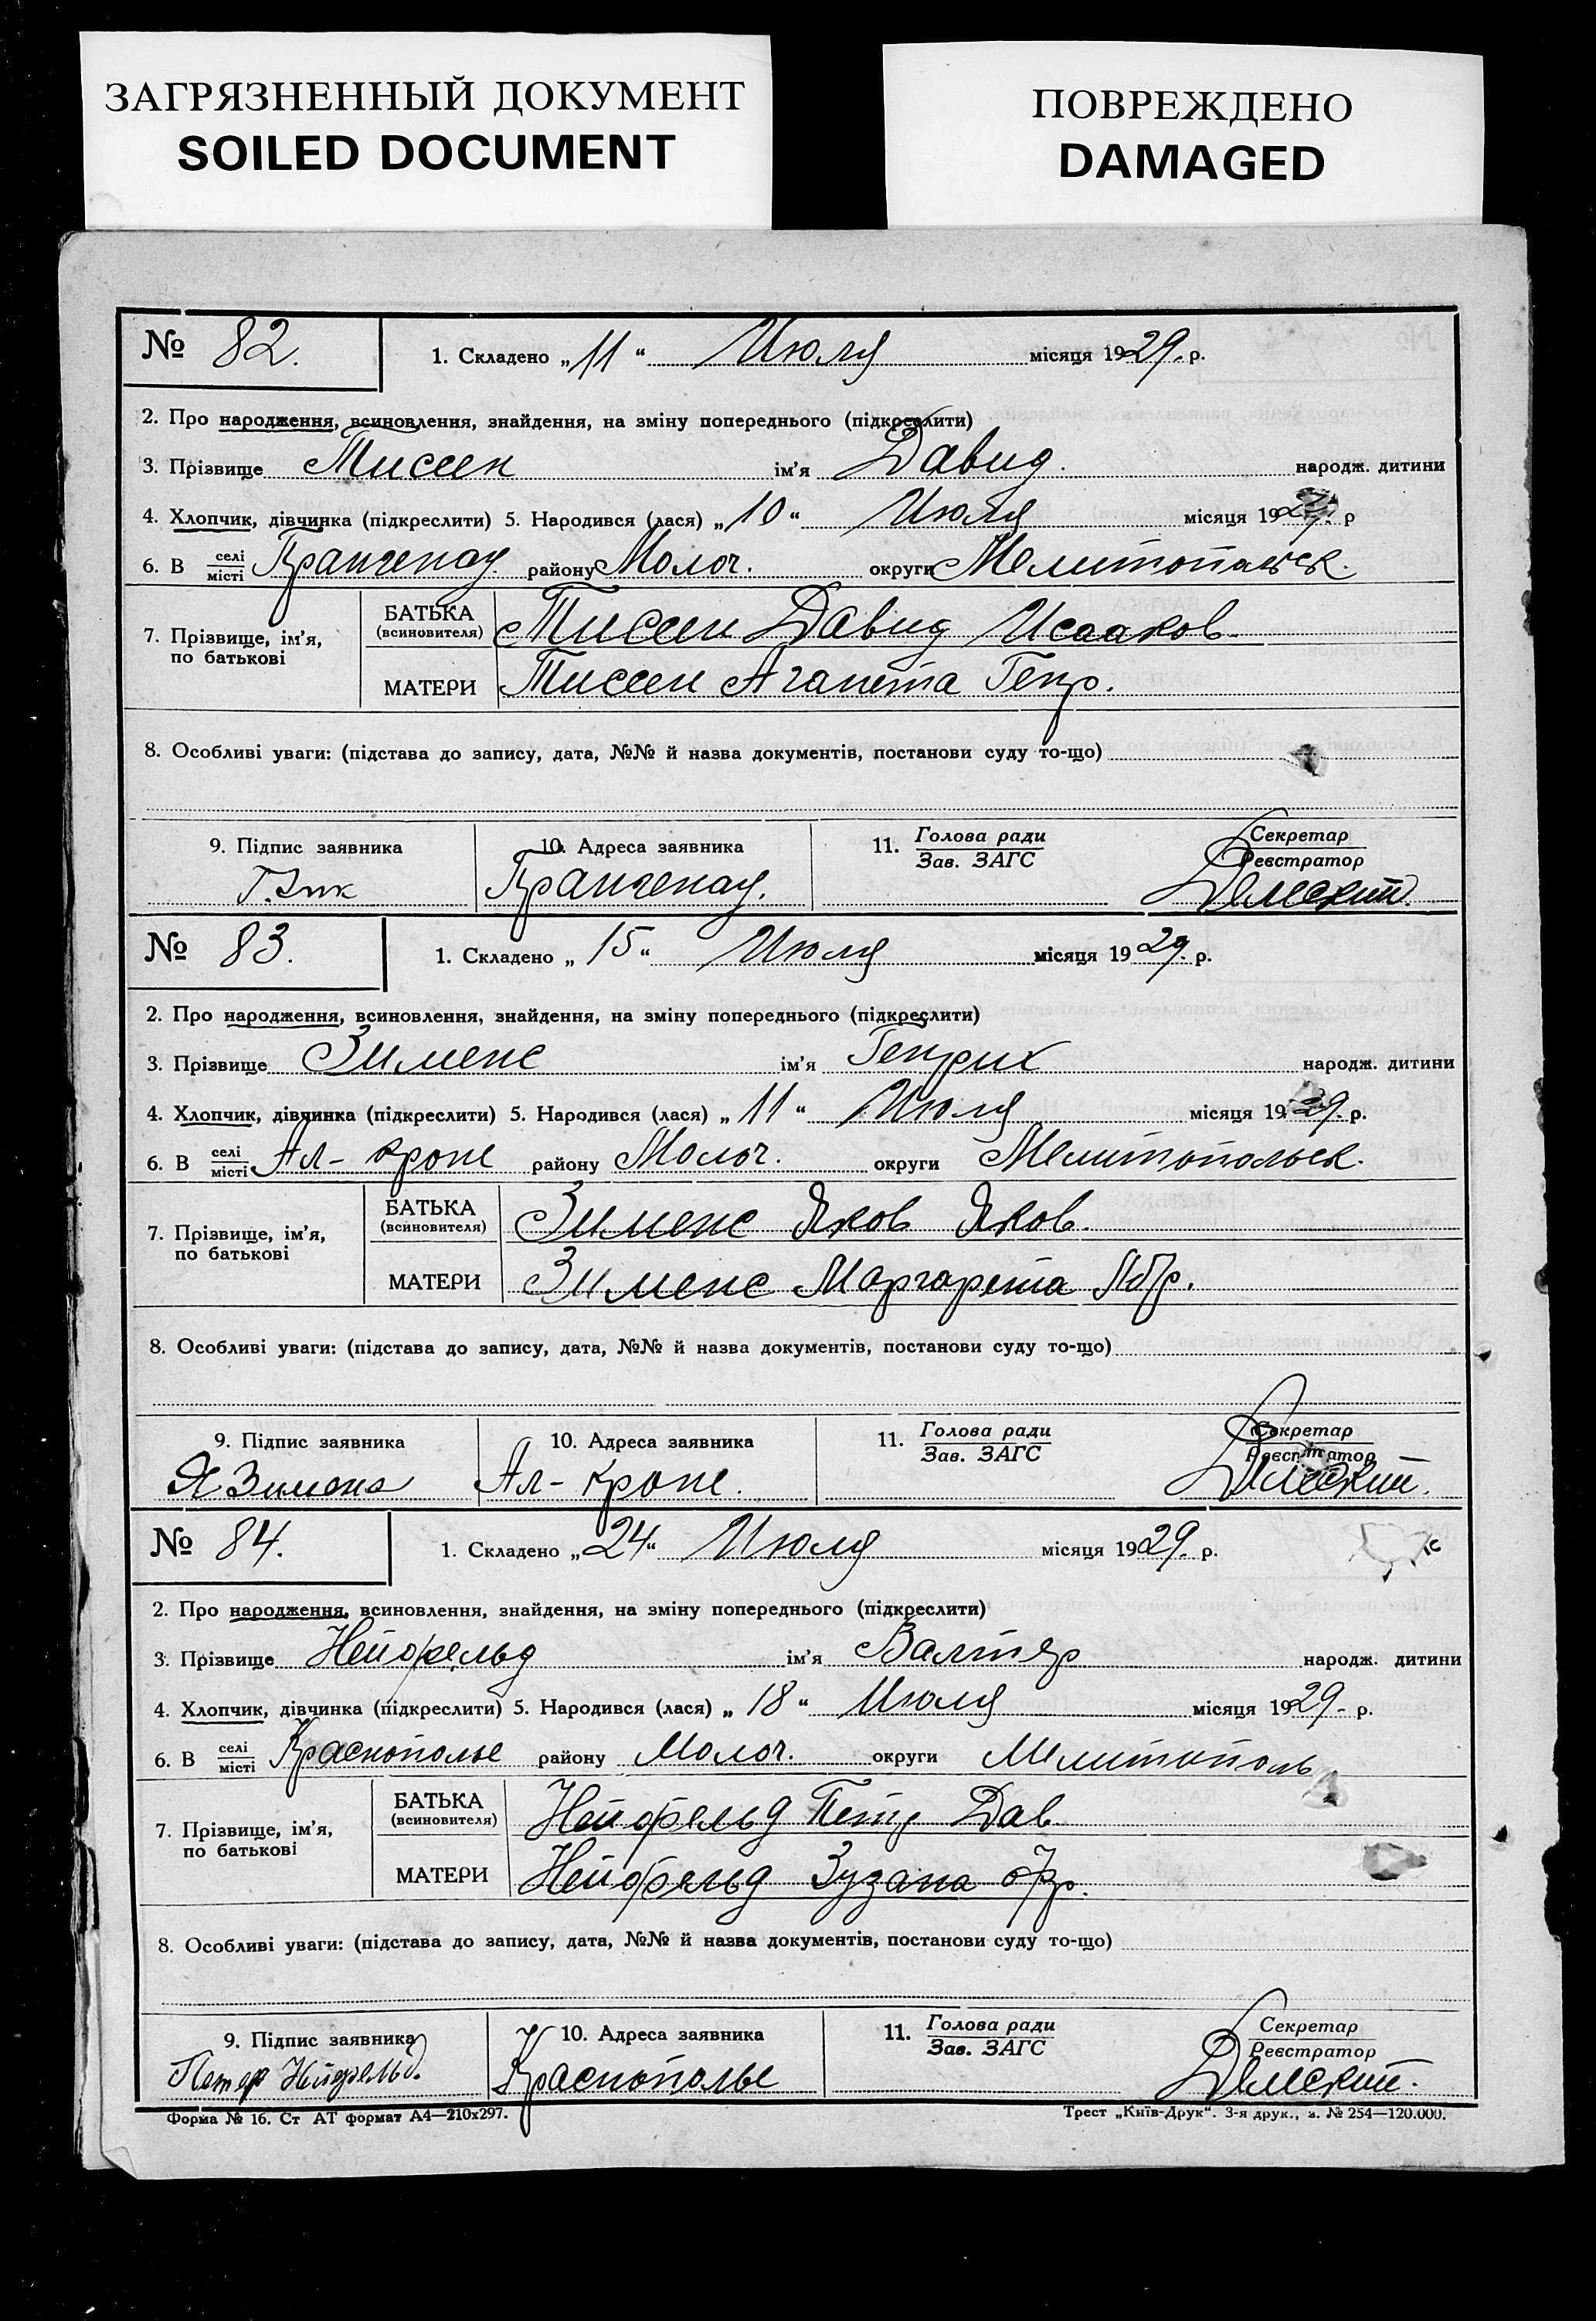 ЗАГРЯЗНЕННЫЙ ДОКУМЕНТ
SOILED DOCUMENT
ПОВРЕЖДЕНО
DAMAGED
№ 82. 1. Складено „11“ Июля місяця 1929. р.
2. Про народження, всиновлення, знайдення, на зміну попереднього (підкреслити)
3. Прізвище Тиссен ім'я Давид. народж. дитини
4. Хлопчик, дівчинка (підкреслити) 5. Народився (лася) „10“ Июля місяця 1929. р
6. В селі/місті Крангенау району Молоч. округи Мелитопольск.
7. Прізвище, ім'я, по батькові
БАТЬКА (всиновителя) Тиссен Давид Исааков
МАТЕРИ Тиссен Аганета Генр.
8. Особливі уваги: (підстава до запису, дата, №№ й назва документів, постанови суду то-що)
9. Підпис заявника 10. Адреса заявника 11. Голова ради/Зав. ЗАГС Секретар/Реєстратор
Крангенау.
№ 83. 1. Складено „15“ Июля місяця 1929. р.
2. Про народження, всиновлення, знайдення, на зміну попереднього (підкреслити)
3. Прізвище Зименс ім'я Генрих народж. дитини
4. Хлопчик, дівчинка (підкреслити) 5. Народився (лася) „11“ Июля місяця 1929. р.
6. В селі/місті Ал-Кроне району Молоч. округи Мелитопольск.
7. Прізвище, ім'я, по батькові
БАТЬКА (всиновителя) Зименс Яков Яков.
МАТЕРИ Зименс Маргарета
8. Особливі уваги: (підстава до запису, дата, №№ й назва документів, постанови суду то-що)
9. Підпис заявника 10. Адреса заявника 11. Голова ради/Зав. ЗАГС Секретар/Реєстратор
Я Зименс Ал-Кроне.
№ 84. 1. Складено „24“ Июля місяця 1929. р.
2. Про народження, всиновлення, знайдення, на зміну попереднього (підкреслити)
3. Прізвище Нейфельд ім'я Валтер народж. дитини
4. Хлопчик, дівчинка (підкреслити) 5. Народився (лася) „18“ Июля місяця 1929. р.
6. В селі/місті Краснополье району Молоч. округи Мелитополь
7. Прізвище, ім'я, по батькові
БАТЬКА (всиновителя) Нейфельд Петр Дав
МАТЕРИ Нейфельд Зузана Фр.
8. Особливі уваги: (підстава до запису, дата, №№ й назва документів, постанови суду то-що)
9. Підпис заявника 10. Адреса заявника 11. Голова ради/Зав. ЗАГС Секретар/Реєстратор
Петер Нейфельд. Краснополье
Форма № 16. Ст АТ формат А4—210х297. Трест „Київ-Друк“. 3-я друк., з. № 254—120.000.